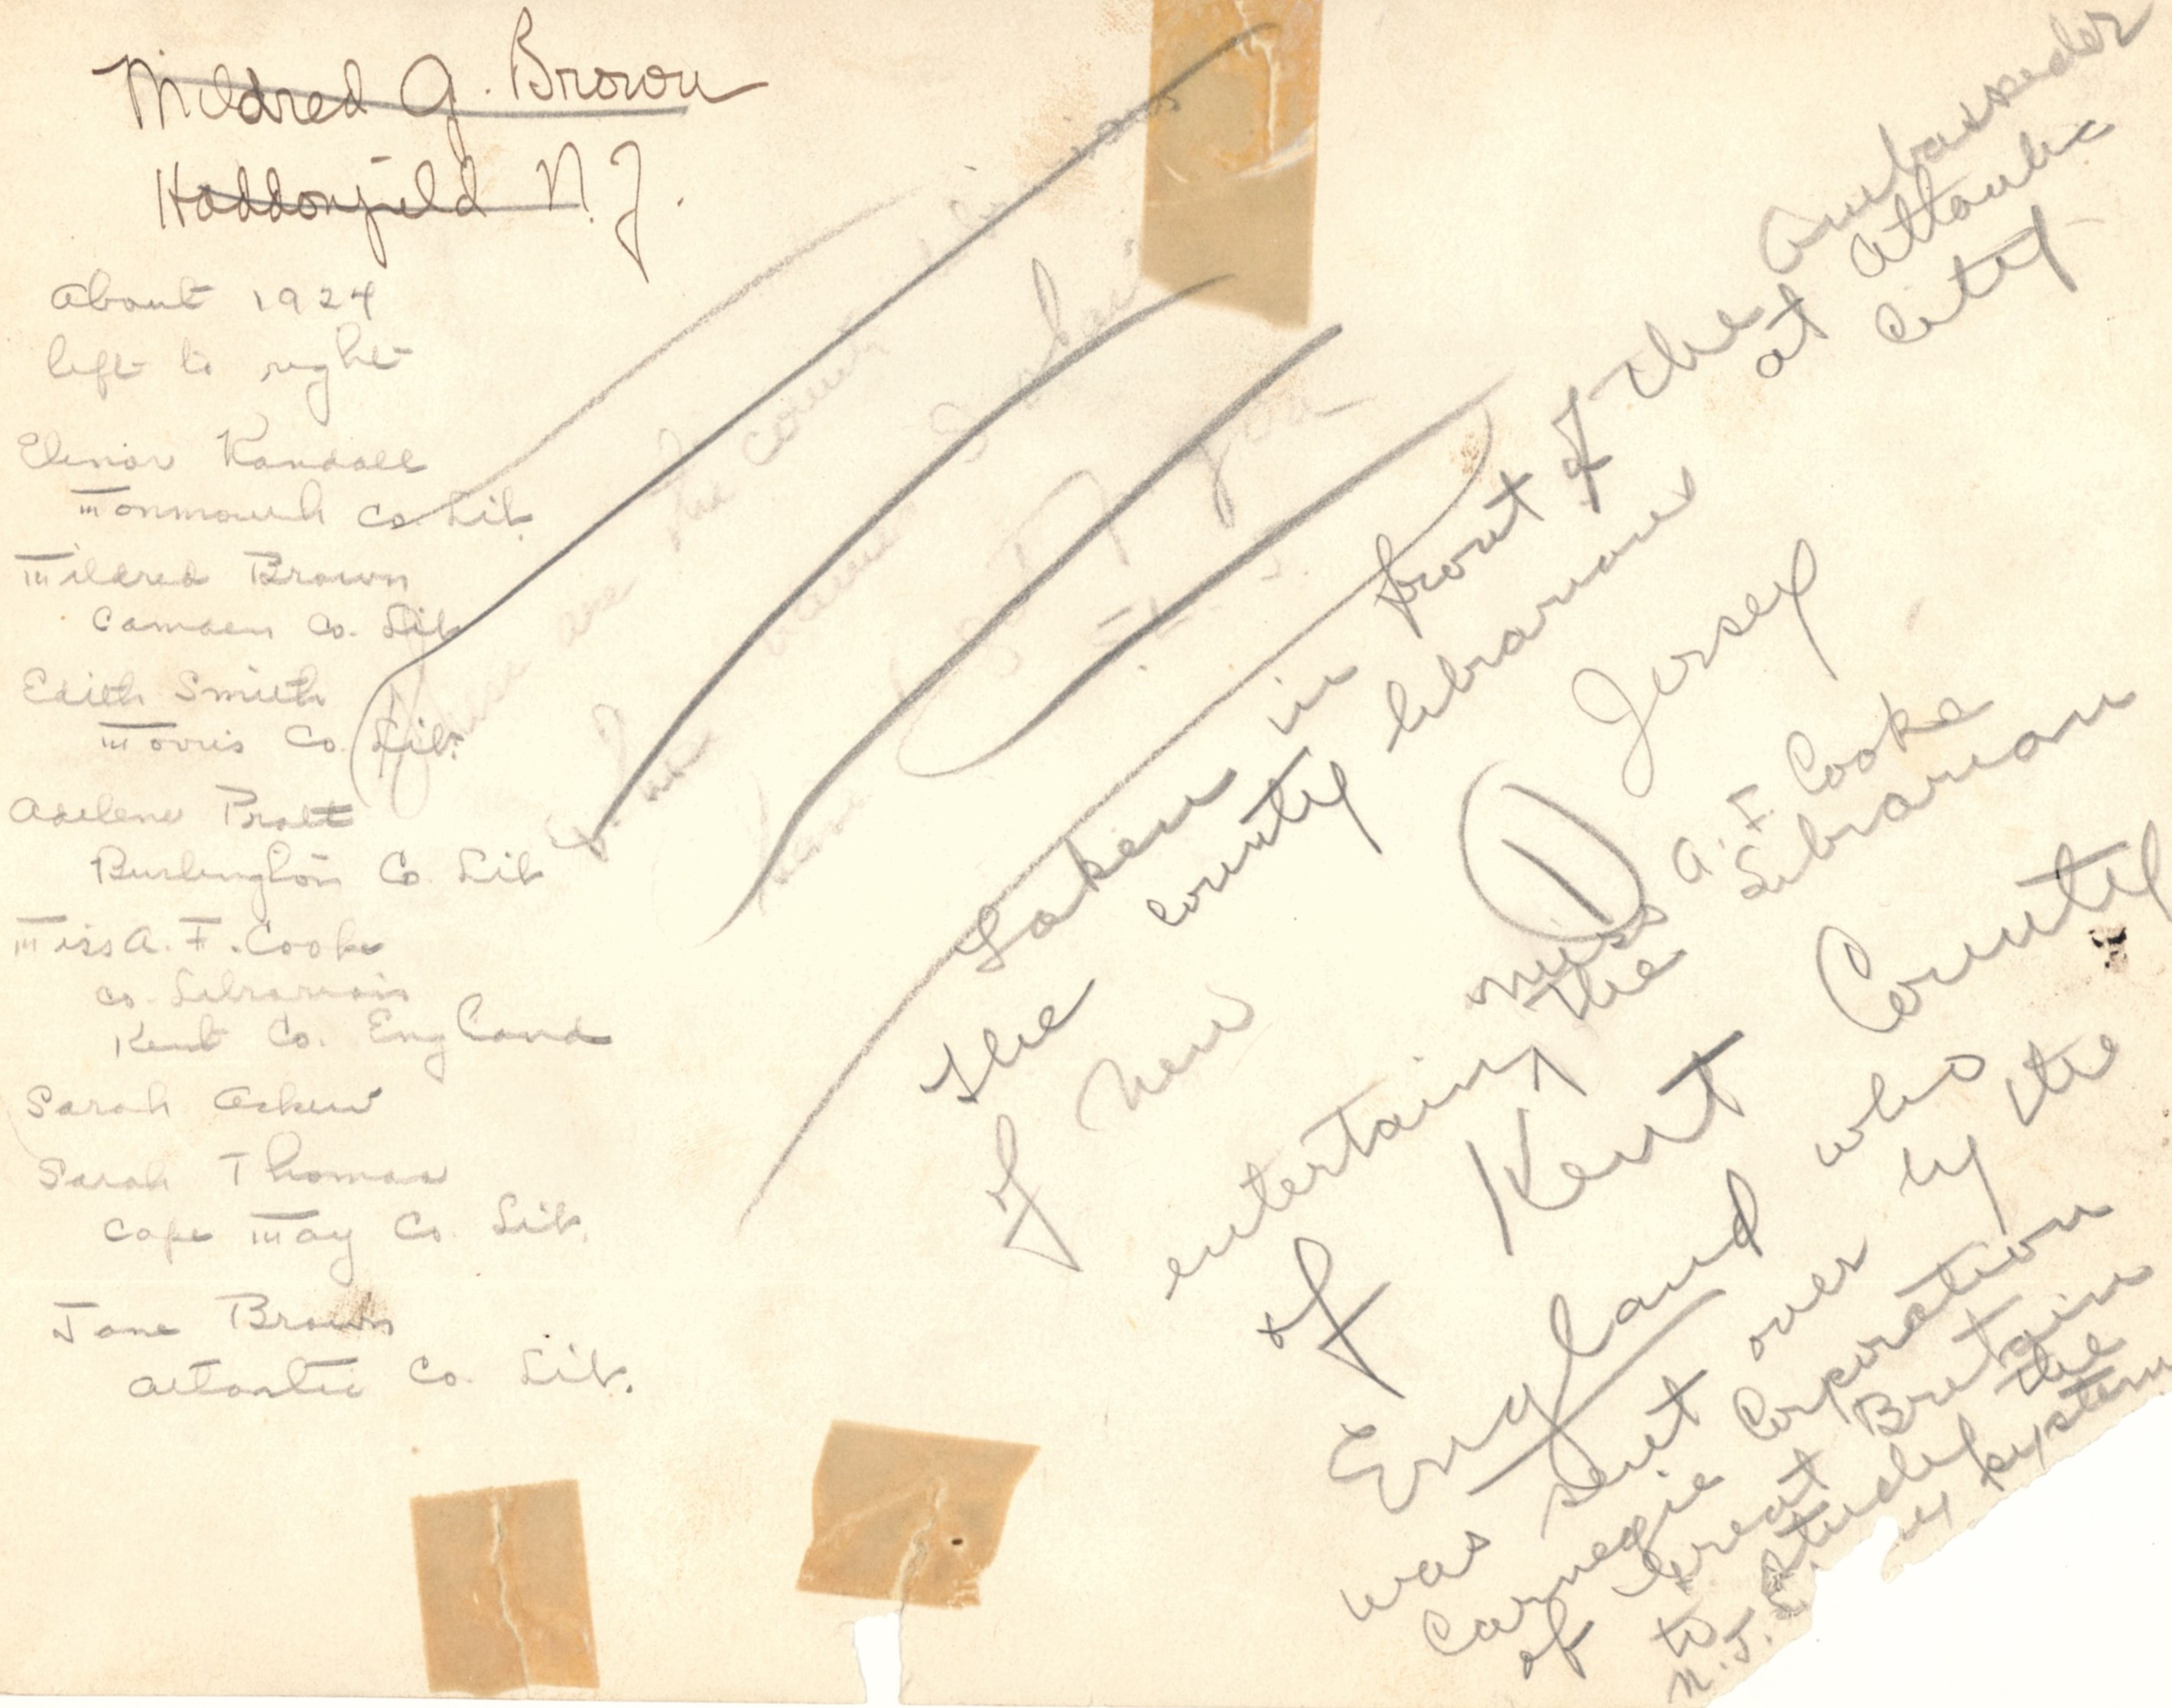 Mildred G. Brown
Haddonfield N.J.
About 1924
left to right
Elinor Randall
Monmouth Co. Lib.
Mildred Brown
Camden Co. Lib
Edith Smith
Morris Co. Lib.
Adelene Pratt
Burlington Co. Lib
Miss A. F. Cooke
Co. Librarian
Kent Co. England
Sarah Askew
Sarah Thomas
Cape May Co. Lib.
Jane Brown
Atlantic Co. Lib.
These are the county librarians
Taken in front of the Ambassador
at Atlantic
City
The county librarians
of New Jersey
1
entertaining Miss A. F. Cooke
the Librarian
of Kent County
England who
was sent over by the
Carnegie Corporation
of Great Britain
to study the
N.J. system